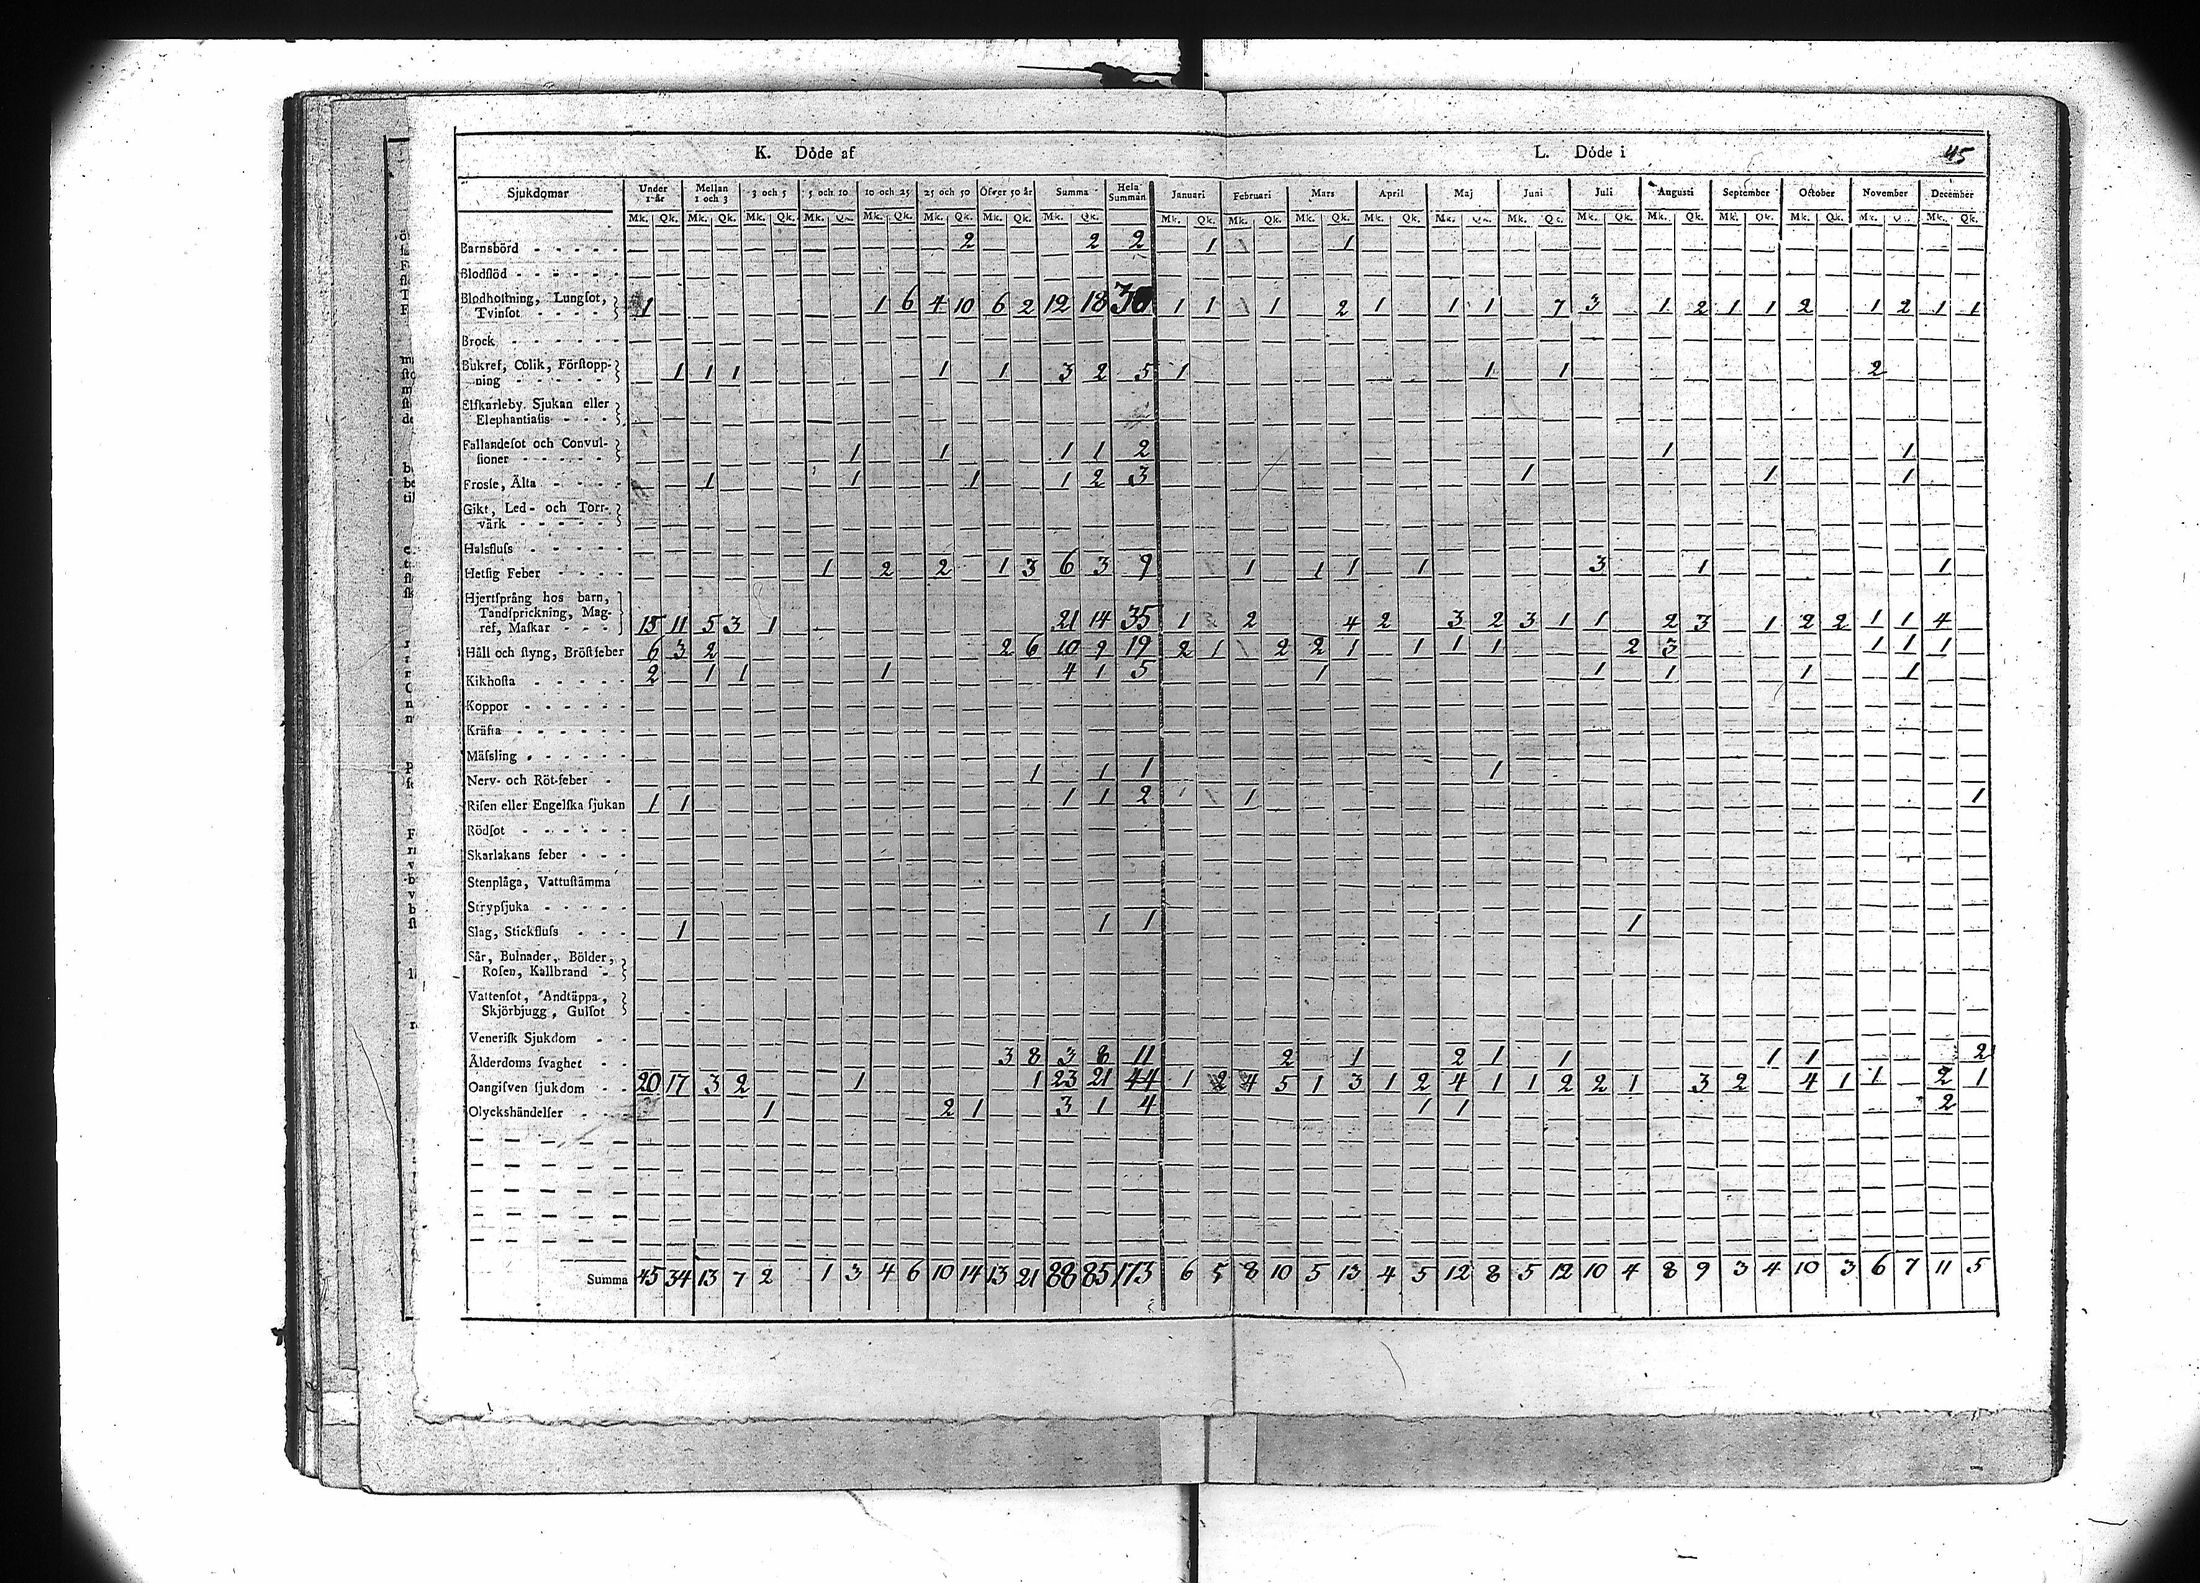 K. Döde af L. Döde i 45
Sjukdomar Under 1 år Mellan 1 och 3 3 och 5 5 och 10 10 och 25 25 och 50 Öfver 50 år Summa Hela Summan Januari Februari Mars April Maj Juni Juli Augusti September October November December
Mk. Qk. Mk. Qk. Mk. Qk. Mk. Qk. Mk. Qk. Mk. Qk. Mk. Qk. Mk. Qk. Mk. Qk. Mk. Qk. Mk. Qk. Mk. Qk. Mk. Qk. Mk. Qk. Mk. Qk. Mk. Qk. Mk. Qk. Mk. Qk. Mk. Qk. Mk. Qk.
Barnsbörd - - - - 2 2 2 1 1
Blodflöd - - - - - -
Blodhostning, Lungsot,
Tvinsot - - - - 1 1 6 4 10 6 2 12 18 30 1 1 1 2 1 1 1 7 3 1 2 1 1 2 1 2 1 1
Brock - - - - - -
Bukref, Colik, Förstopp-
ning - - - - - 1 1 1 1 1 3 2 5 1 1 1 2
Elfkarleby Sjukan eller
Elephantiasis - - -
Fallandesot och Convul-
sioner - - - - - 1 1 1 1 2 1 1
Frosse, Älta - - - - 1 1 1 1 2 3 1 1 1
Gikt, Led- och Torr-
värk - - - - -
Halsfluss - - - - -
Hetsig Feber - - - - 1 2 2 1 3 6 3 9 1 1 1 1 3 1 1
Hjertsprång hos barn,
Tandsprickning, Mag-
ref, Maskar - - - 15 11 5 3 1 21 14 35 1 2 4 2 3 2 3 1 1 2 3 1 2 2 1 1 4
Håll och styng, Bröstfeber 6 3 2 2 6 10 9 19 2 1 2 2 1 1 1 1 2 3 1 1 1
Kikhosta - - - - - 2 1 1 1 4 1 5 1 1 1 1 1
Koppor - - - - - -
Kräfta - - - - - -
Mässling - - - - -
Nerv- och Röt-feber - 1 1 1 1
Risen eller Engelska sjukan 1 1 1 1 2 1 1
Rödsot - - - - - -
Skarlakans feber - - -
Stenplåga, Vattustämma
Strypsjuka - - - - -
Slag, Stickfluss - - - 1 1 1 1
Sår, Bulnader, Bölder,
Rosen, Kallbrand -
Vattensot, Andtäppa,
Skjörbjugg, Gulsot
Venerisk Sjukdom - -
Ålderdoms svaghet - - 3 8 3 8 11 2 1 2 1 1 1 1 2
Oangifven sjukdom - - 20 17 3 2 1 1 23 21 44 1 2 4 5 1 3 1 2 4 1 1 2 2 1 3 2 4 1 1 2 1
Olyckshändelser - - - 1 2 1 3 1 4 1 1 2
Summa 45 34 13 7 2 1 3 4 6 10 14 13 21 88 85 173 6 5 8 10 5 13 4 5 12 8 5 12 10 4 8 9 3 4 10 3 6 7 11 5